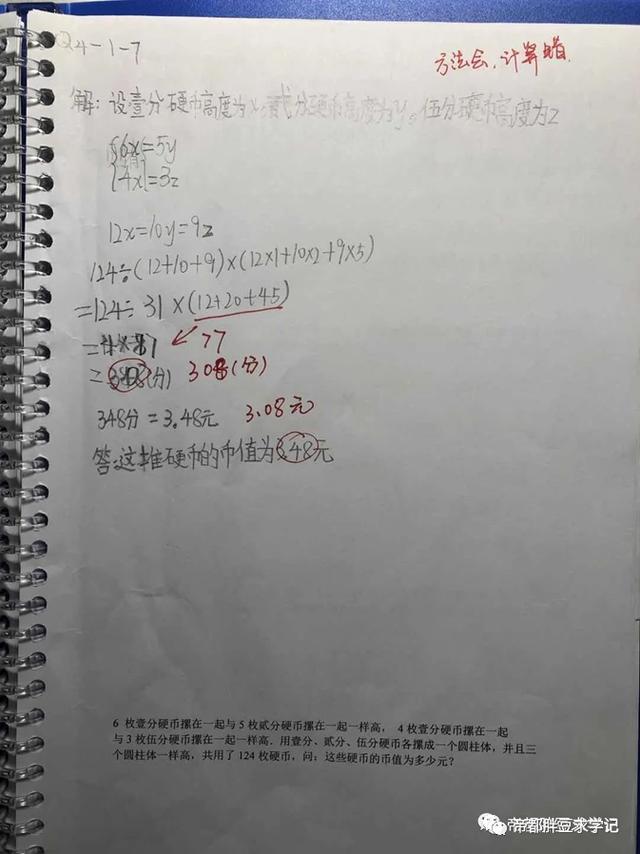 Q4-1-7
方法会,计算错.
解:设壹分硬币高度为x,贰分硬币高度为y,伍分硬币高度为z
6x=5y
4x=3z
12x=10y=9z
124÷(12+10+9)×(12×1+10×2+9×5)
=124÷31×(12+20+45)
77
=348(分) 308(分)
348分=3.48元 3.08元
答:这堆硬币的币值为3.48元
6 枚壹分硬币摞在一起与 5 枚贰分硬币摞在一起一样高, 4 枚壹分硬币摞在一起
与 3 枚伍分硬币摞在一起一样高.用壹分、贰分、伍分硬币各摞成一个圆柱体,并且三
个圆柱体一样高,共用了 124 枚硬币,问:这些硬币的币值为多少元?
帝都胖豆求学记